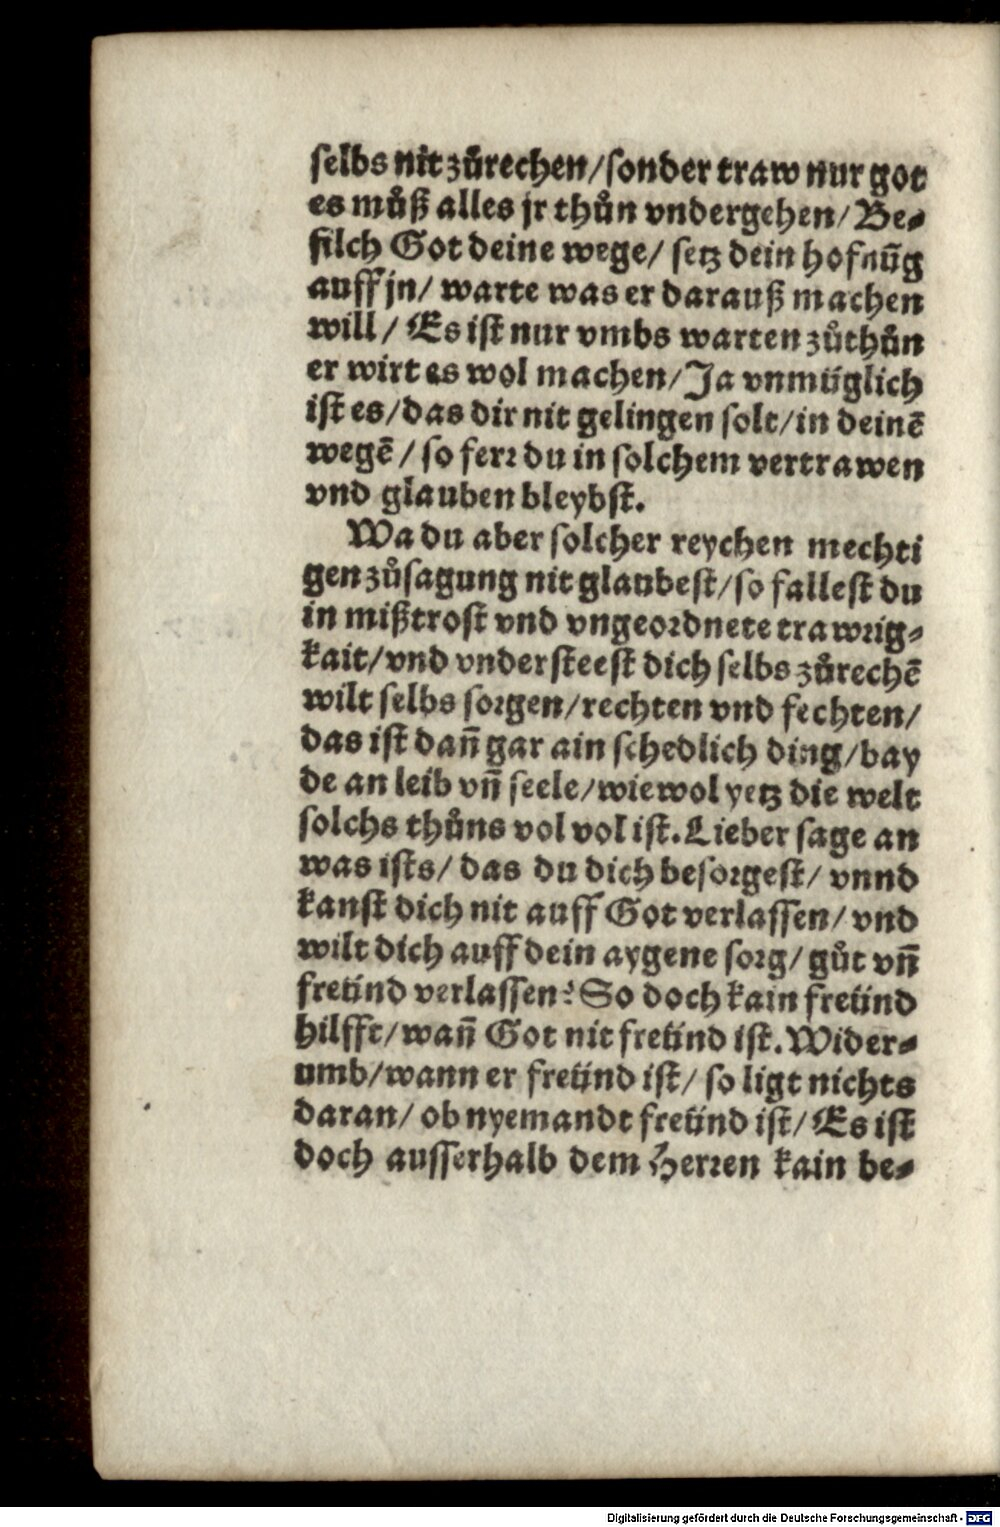 ſelbs nit zůrechen/ſonder traw nur got
es můß alles jr thůn vndergehen/ Be⸗
filch Got deine wege/ ſetz dein hofnūg
auff jn/ warte was er darauß machen
will/ Es iſt nur vmbs warten zůthůn
er wirt es wol machen/ Ja vnmüglich
iſt es/das dir nit gelingen ſolt/in deinē
wegē/ſo ferꝛ du in ſolchem vertrawen
vnd glauben bleybſt.
Wa du aber ſolcher reychen mechti
gen zůſagung nit glaubeſt/ſo falleſt du
in mißtroſt vnd vngeoꝛdnete trawꝛig⸗
kait/vnd vnderſteeſt dich ſelbs zůrechē
wilt ſelbs ſoꝛgen/rechten vnd fechten/
das iſt dañ gar ain ſchedlich ding/bay
de an leib vñ ſeele/wiewol yetz die welt
ſolchs thůns vol vol iſt. Lieber ſage an
was iſts/ das du dich beſoꝛgeſt/ vnnd
kanſt dich nit auff Got verlaſſen/ vnd
wilt dich auff dein aygene ſoꝛg/ gůt vñ
freünd verlaſſen? So doch kain freünd
hilfft/wañ Got nit freünd iſt. Wider⸗
umb/wann er freünd iſt/ ſo ligt nichts
daran/ ob nyemandt freünd iſt/ Es iſt
doch auſſerhalb dem Herꝛen kain be⸗
Digitalisierung gefördert durch die Deutsche Forschungsgemeinschaft - DFG